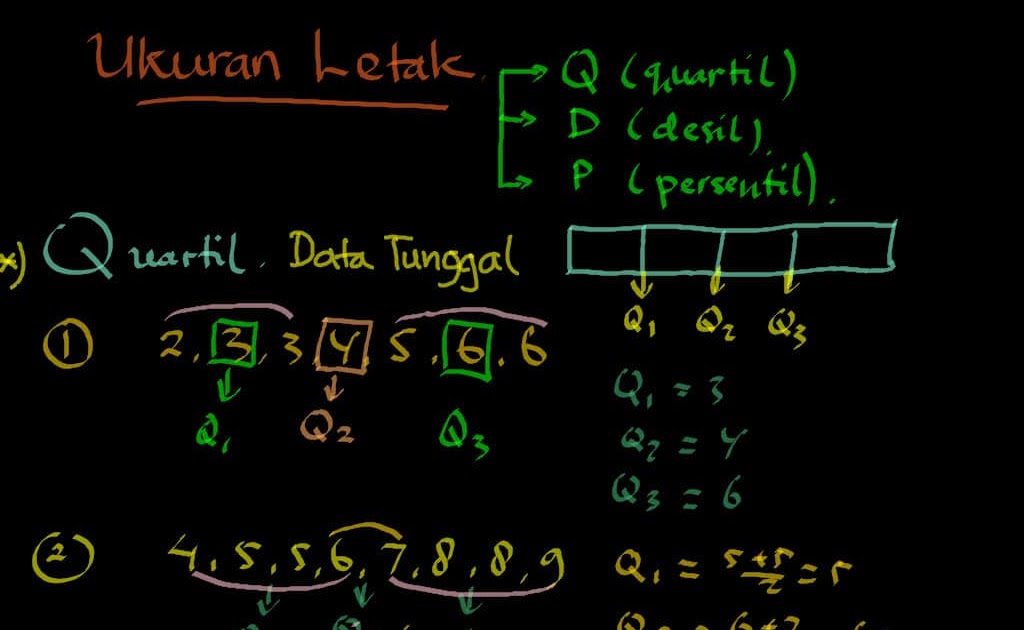 Ukuran Letak
Q (quartil)
D (desil)
P (persentil).
*) Quartil. Data Tunggal
Q1 Q2 Q3
① 2, 3, 3, 4, 5, 6, 6
Q1 Q2 Q3
Q1 = 3
Q2 = 4
Q3 = 6
② 4, 5, 5, 6, 7, 8, 8, 9
Q1 = 5+5/2 = 5